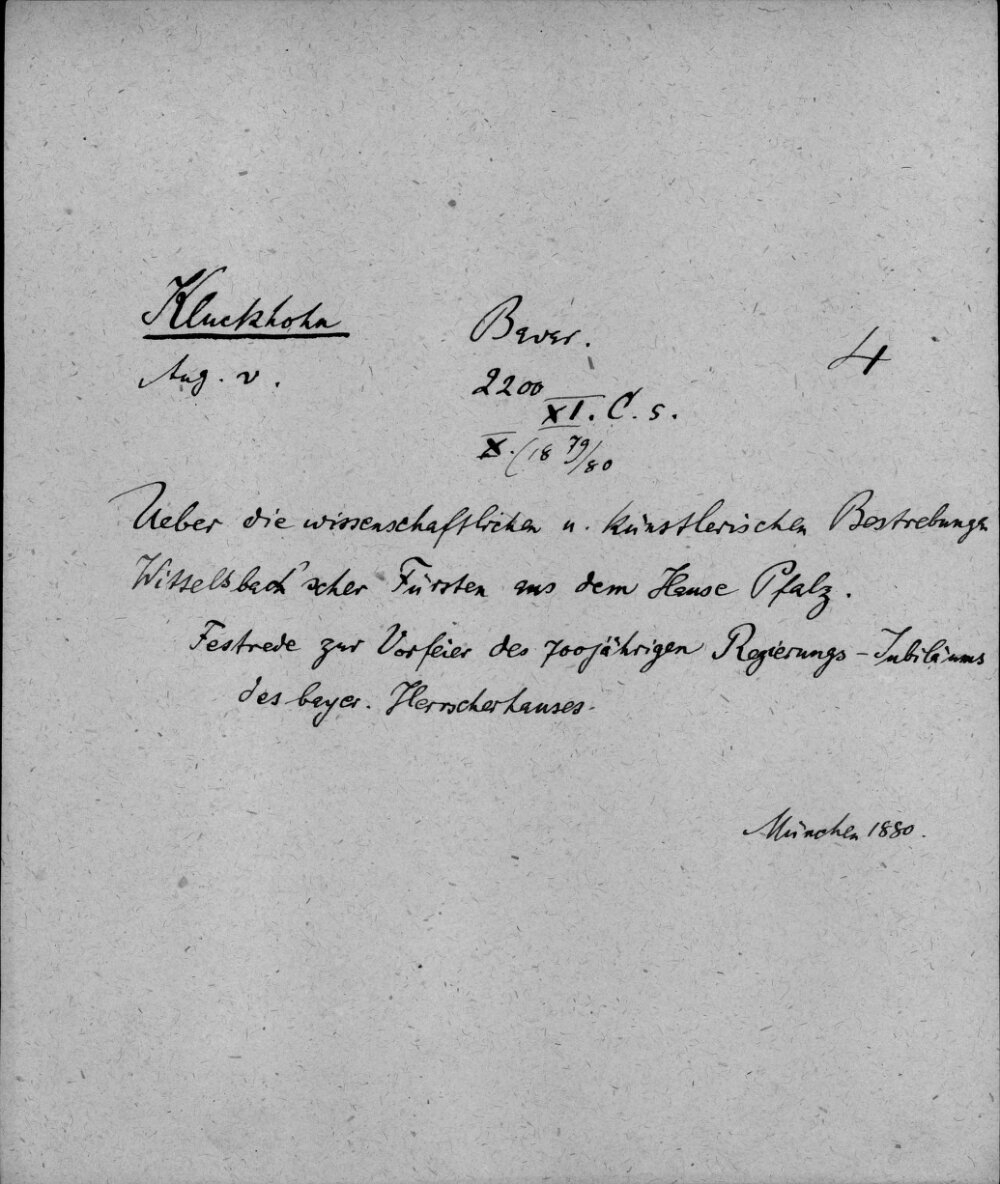 Kluckhohn
Aug. v.
Bavar.
2200
XI. C. s.
X. (18 79/80
4
Ueber die wissenschaftlichen u. künstlerischen Bestrebungen
Wittelsbach'scher Fürsten aus dem Hause Pfalz.
Festrede zur Vorfeier des 700jährigen Regierungs-Jubiläums
des bayer. Herrscherhauses.
München 1880.